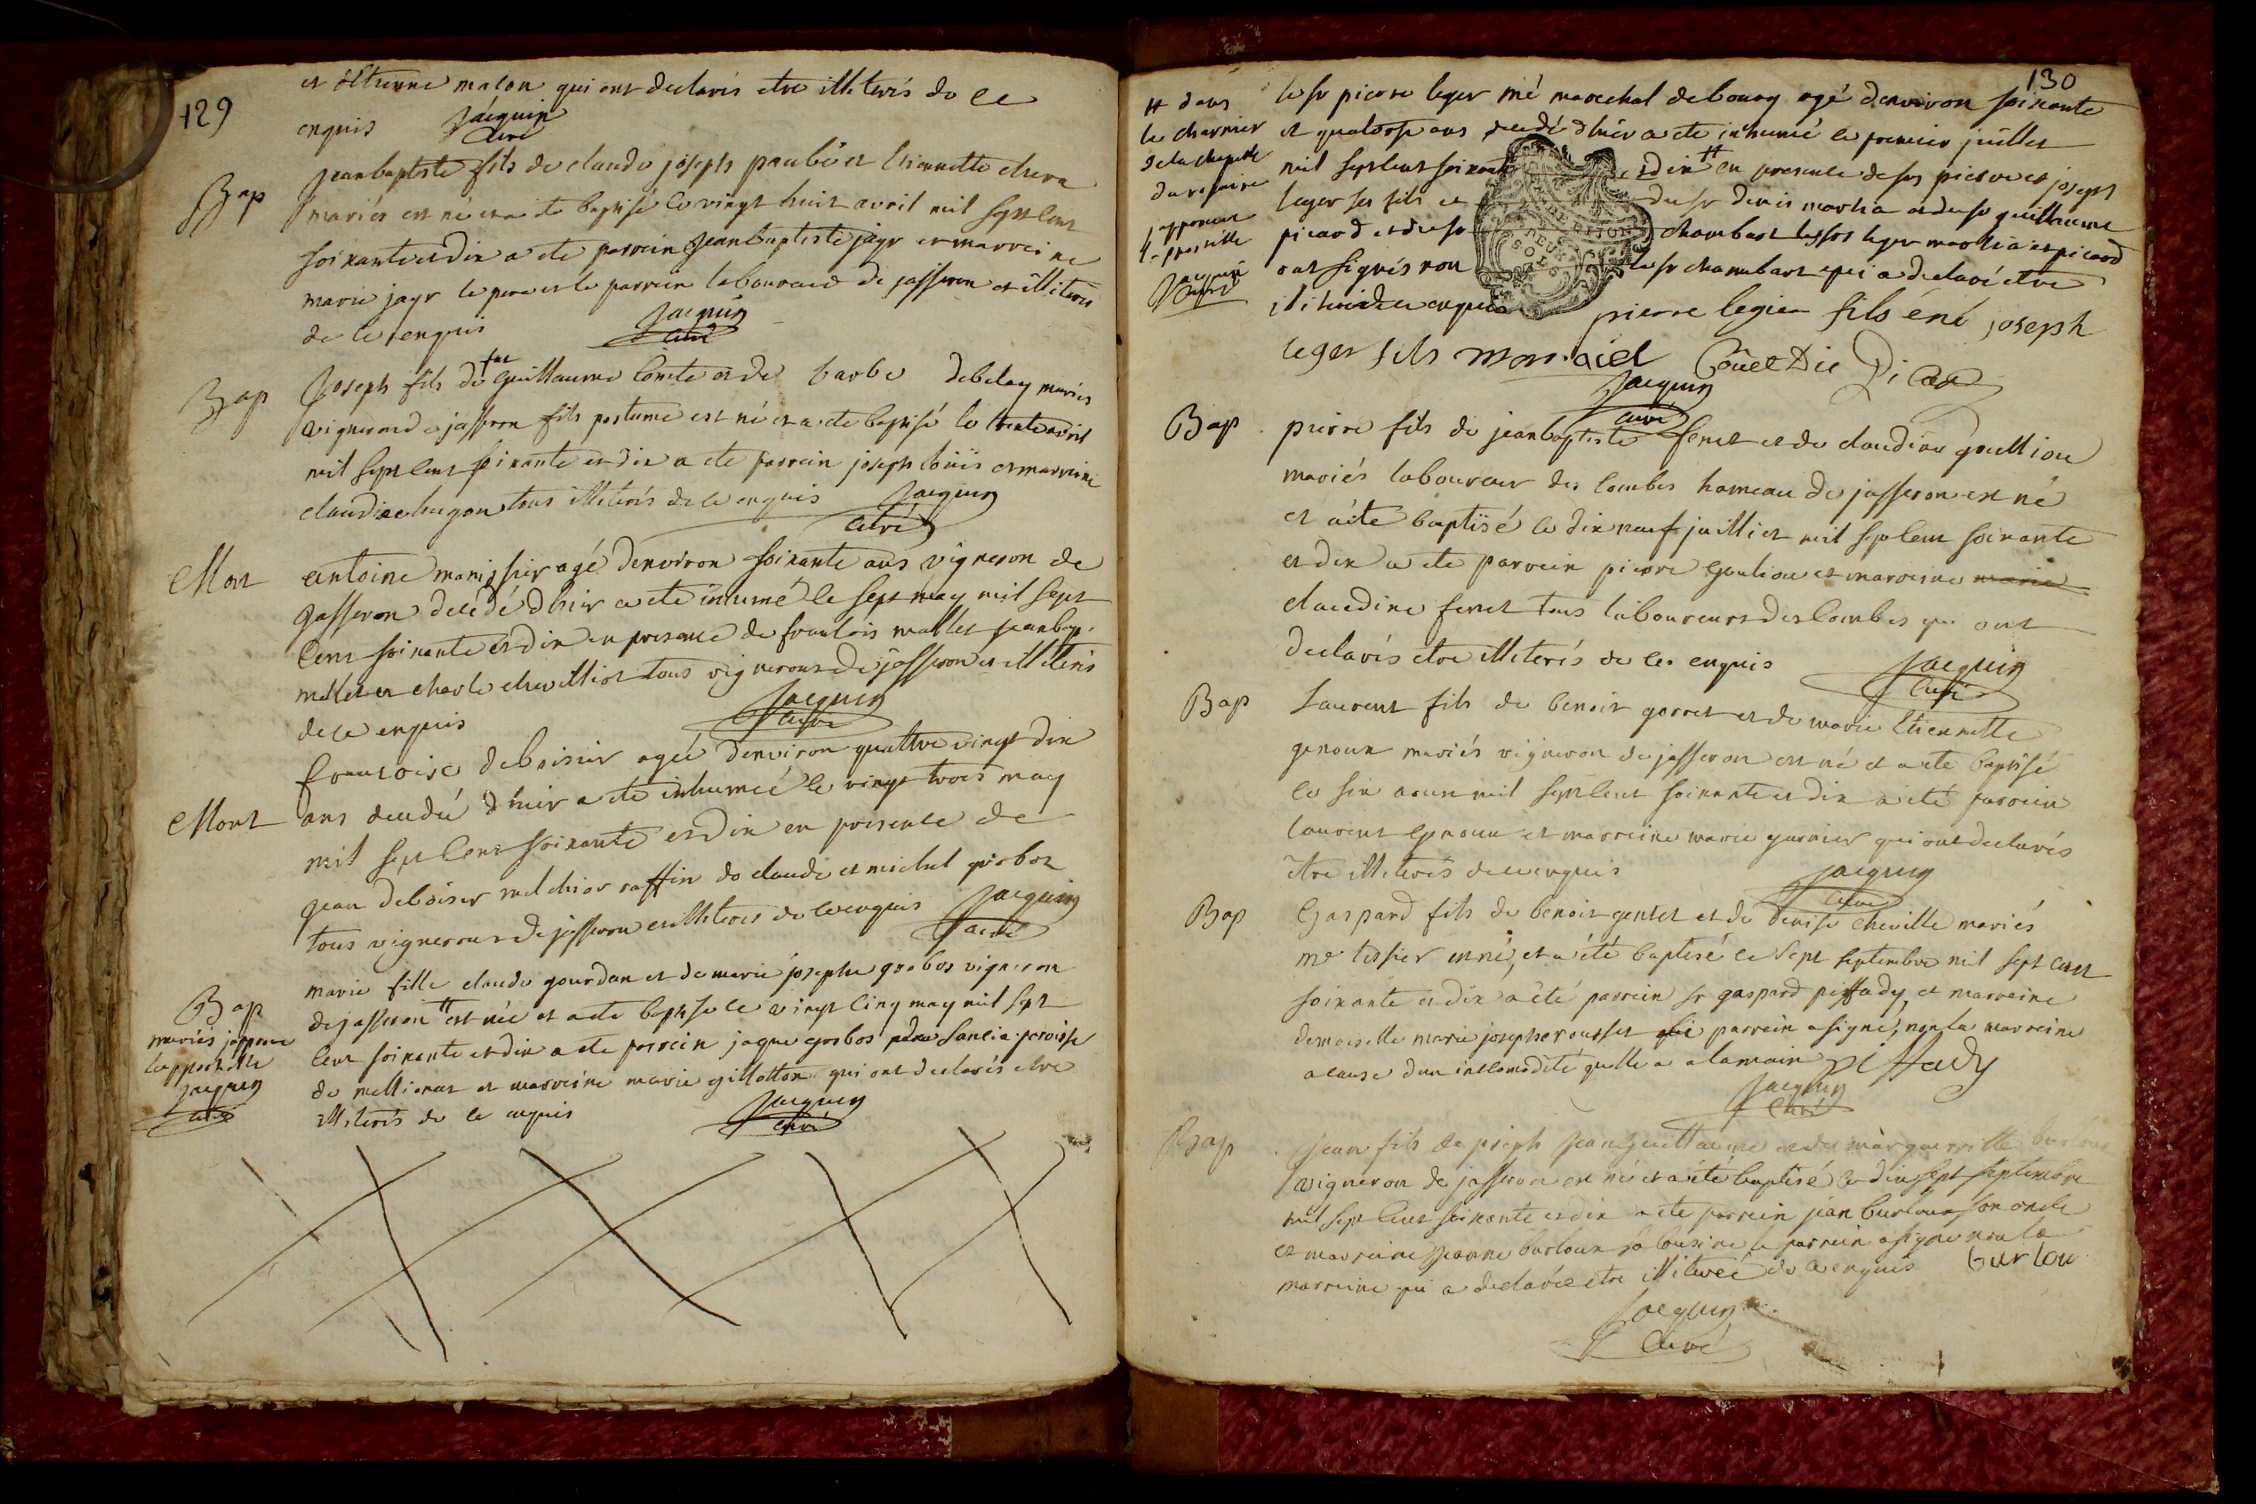 129
et Estienne macon qui ont declarés etre illiterés de ce
enquis Jacquin
Curé
Bap
Jean baptiste fils de claude joseph paubé et Etiennette
mariés est né et a été baptisé le vingt huit avril mil sept cent
soixante et dix a ete parrein jean baptiste jayr et marreine
marie jayr le pere et le parrein laboureurs de jasseron et illiterés
de ce enquis Jacquin
Curé
Bap
Joseph fils de feu Guillaume Comte et de barbe debelay mariés
vigneron de jasseron fils postume est né et a ete baptisé le trente avril
mil sept cent soixante et dix a ete parrein joseph loüis et marreine
claudine hugon tous illiterés de ce enquis Jacquin
Curé
Mort
antoine manissier agé denviron soixante ans vigneron de
Jasseron decédé dhier a ete inhumé le sept may mil sept
Cent soixante et dix en presence de francois mallet jean bap.
mallet et charle chevilliot tous vignerons de jasseron et illiterés
de ce enquis Jacquin
Curé
Mort
francoise deboisier agée denviron quattre vingt dix
ans decedée d'hier a ete inhumée le vingt trois may
mil sept Cent soixante et dix en presence de
jean deboisier melchior raffin de claude et michel grobos
tous vignerons de jasseron et illiterés de ce enquis Jacquin
Curé
Bap
mariés japprouve
lappostille
Jacquin
Curé
marie fille claude gourdan et de marie josephe grobos vigneron
de jasseron # est née et a ete baptisée le vingt cinq may mil sept
Cent soixante et dix a ete parrein jaque grobos paroisse
de et marreine marie gillotton qui ont declarés etre
illiterés de ce enquis Jacquin
Curé
130
# dans
le charnier
de la chapelle
du rosaire
japprouve
l'appostille
Jacquin
Curé
le sr pierre leger mé marechal de bourg agé denviron soixante
et quatorze ans decedé dhier a ete inhumé le premier juillet
mil sept cent soixante et dix # en presence de srs pierre et joseph
Leger ses fils et du sr denis et du sr guillaume
picard et du sr chambard les srs leger et picard
ont signés non le sr chambard qui a declaré etre
illiteré de ce enquis pierre legier fils éné joseph
leger fils Picard
Jacquin
Curé
Bap
pierre fils de jean baptiste feret et de claudine goullion
mariés laboureur des Combes hameau de jasseron est né
et a été baptisé le dix neuf juilliet mil sept Cent soixante
et dix a ete parrein pierre goulion et marreine marie
claudine feret tous laboureurs des Combes qui ont
declarés etre illiterés de ce enquis Jacquin
Curé
Bap
Laurent fils de benoit gorret et de marie Etiennette
genoux mariés vigneron de jasseron est né et a ete baptisé
le six aoust mil sept Cent soixante et dix a été parrein
laurent genoux et marreine marie garnier qui ont declarés
etre illiterés de ce enquis Jacquin
Curé
Bap
Gaspard fils de benoit gentet et de denise cheville mariés
me tissier est né, et a été baptisé le sept septembre mil sept cent
soixante et dix a été parrein sr gaspard piffady, et marreine
demoiselle marie josephe rousset parrein a signé, non la marreine
a cause dun incomodité quelle a a la main Piffady
Jacquin
Curé
Bap
Jean fils de joseph jean guillaume et de margueritte burloux
vigneron de jasseron est né et a été baptisé le dix sept septembre
mil sept Cent soixante et dix a ete parrein jean burloux son oncle
et marreine jeanne burloux sa cousine le parrein a signé non la
marreine qui a declarée etre illiterée de ce enquis burlou
Jacquin
Curé